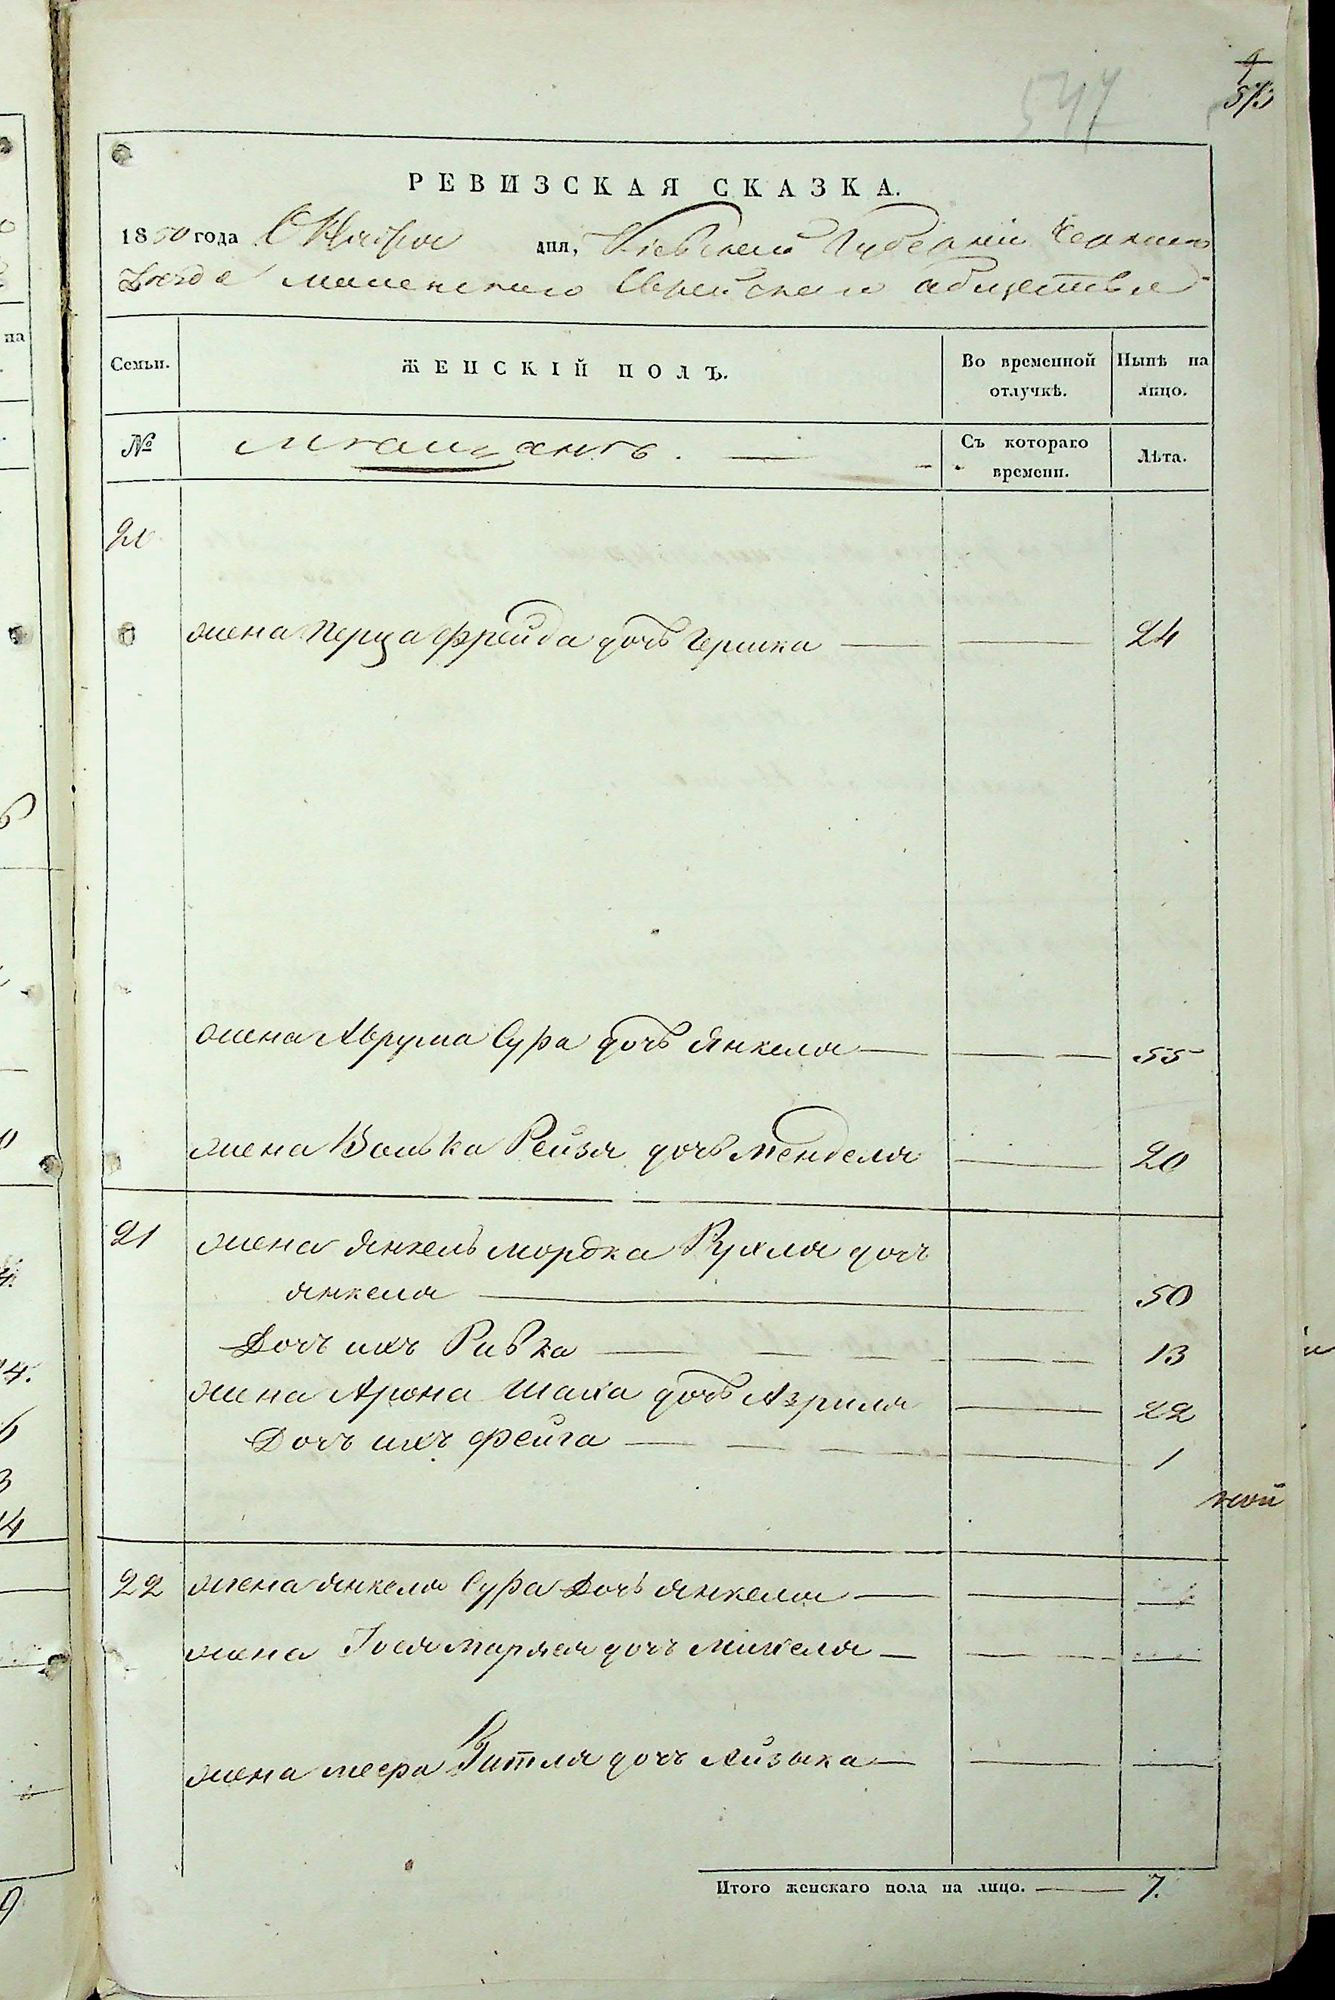 547
РЕВИЗСКАЯ СКАЗКА.
1850 года Октября дня, Кіевской Губерніи Черкаск
Уезда Еврейского общества
Семьи. ЖЕНСКІЙ ПОЛЪ. Во временной отлучкѣ. Нынѣ на лицо.
№ Мещанъ. Съ котораго времени. Лѣта.
жена Перца Фрейда дочь Гершка — — 24
жена Аврума Сура дочь Янкеля — — — 55
жена Волька Рейзя дочь Менделя — 20
21 жена Янкель Мордка Рухля дочь
Янкеля — 50
Дочь ихъ Ривка — — — — — 13
жена Арона Шака дочь Азриля — 22
Дочь ихъ Фейга — — — — 1
ной
22 жена Янкеля Сура дочь Янкеля — — —
жена Іося Маряся дочь Михеля — — — —
жена Меера Гитля дочь Айзыка — — —
Итого женскаго пола на лицо. — 7.